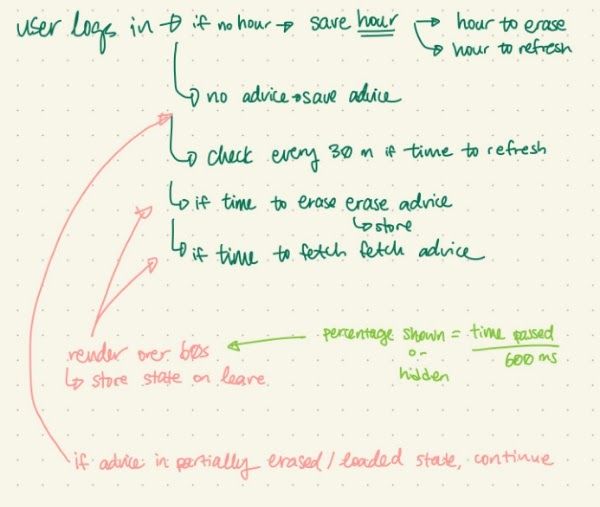 user logs in → if no hour → save hour → hour to erase
↳ hour to refresh
↳ no advice → save advice
↳ check every 30 m if time to refresh
↳ if time to erase erase advice
↳ store
↳ if time to fetch fetch advice
percentage shown = time passed
or
hidden
600 ms
render over 60s
↳ store state on leave
if advice in partially erased / loaded state, continue